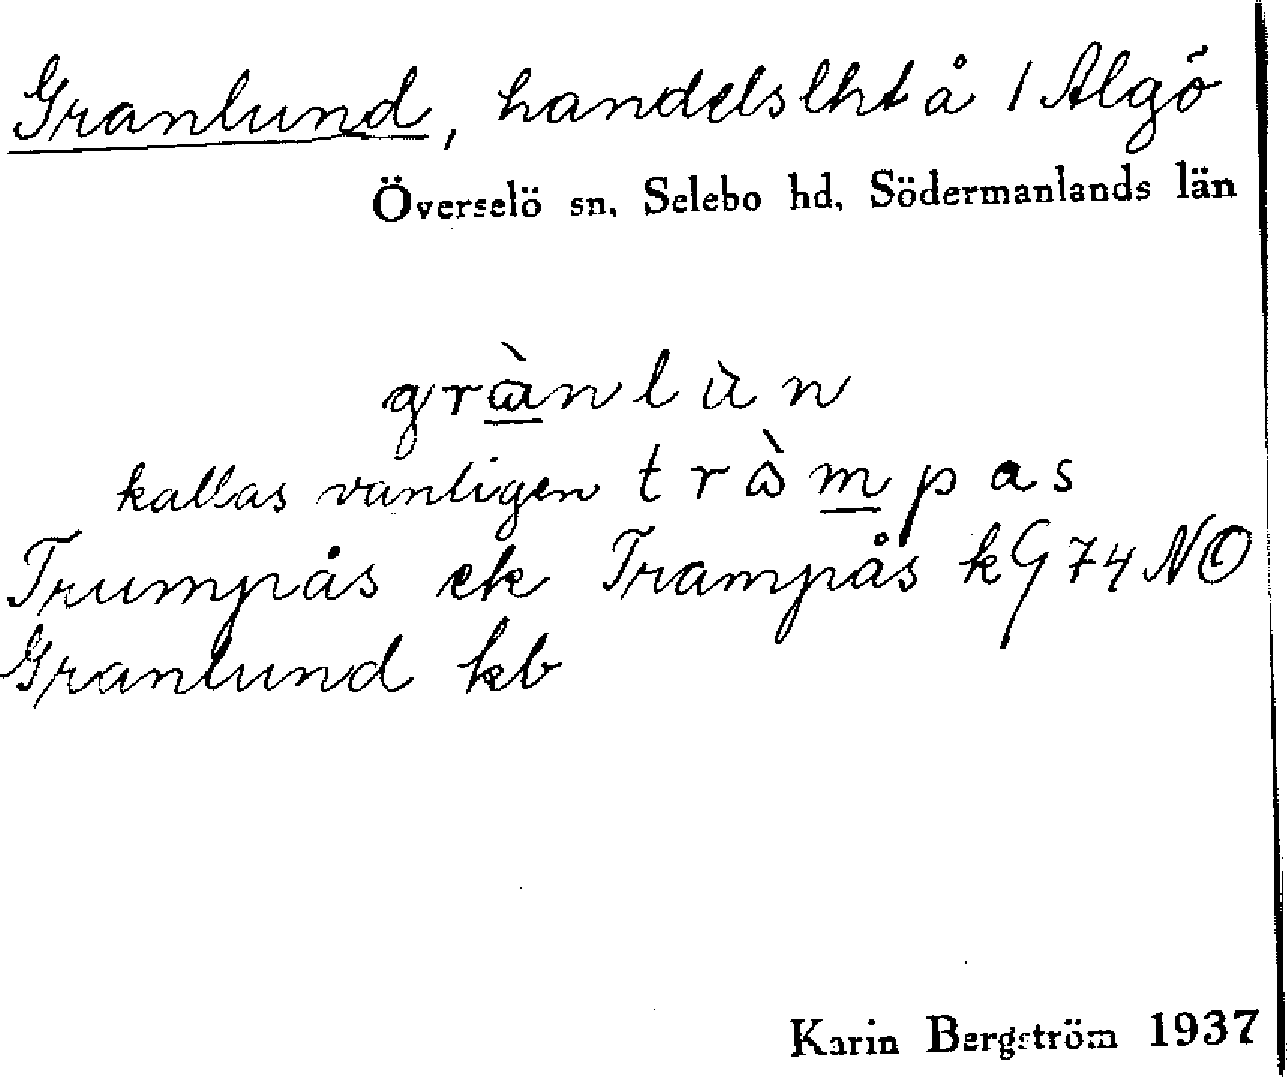 Granlund, handelslht å 1 Algö
Överselö sn, Selebo hd, Södermanlands län
grànlùn
kallas vanligen tràmpas
Trumpås ek Trampås kG 74 NO
Granlund kb
Karin Bergström 1937